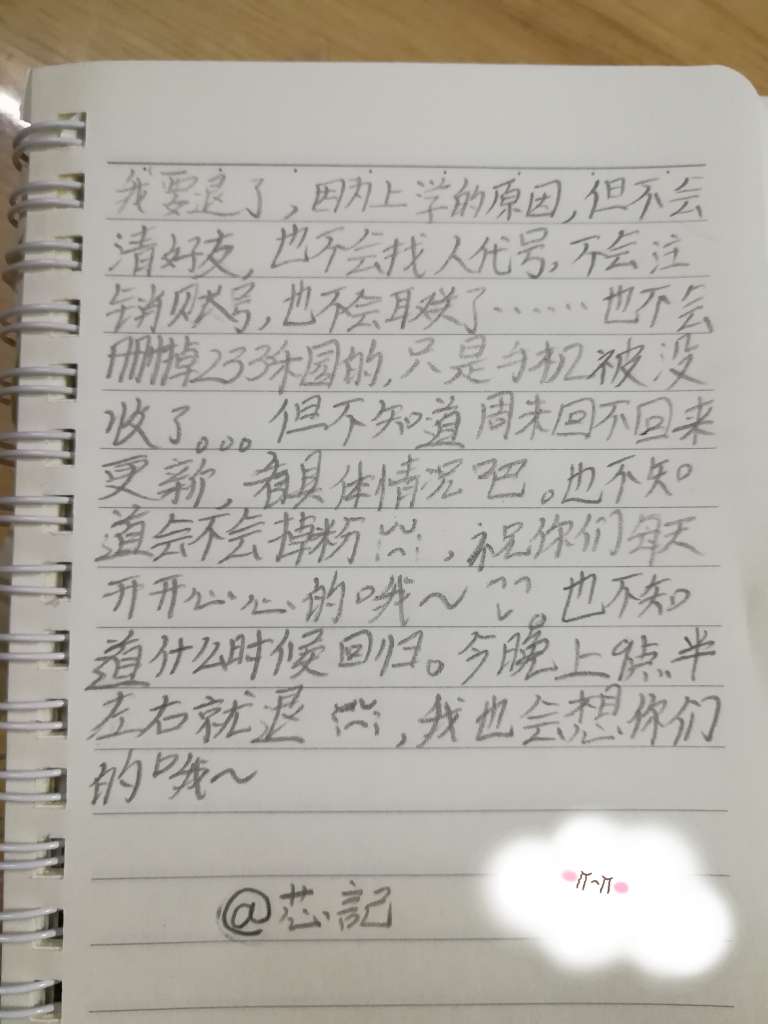 我要退了,因为上学的原因,但不会
清好友,也不会找人代号,不会注
销账号,也不会耳关了……也不会
删掉233乐园的,只是手机被没
收了。。。但不知道周末回不回来
更新,看具体情况吧。也不知
道会不会掉粉,祝你们每天
开开心心的哦~。也不知
道什么时候回归。今晚上9点半
左右就退,我也会想你们
的哦~
@芯記